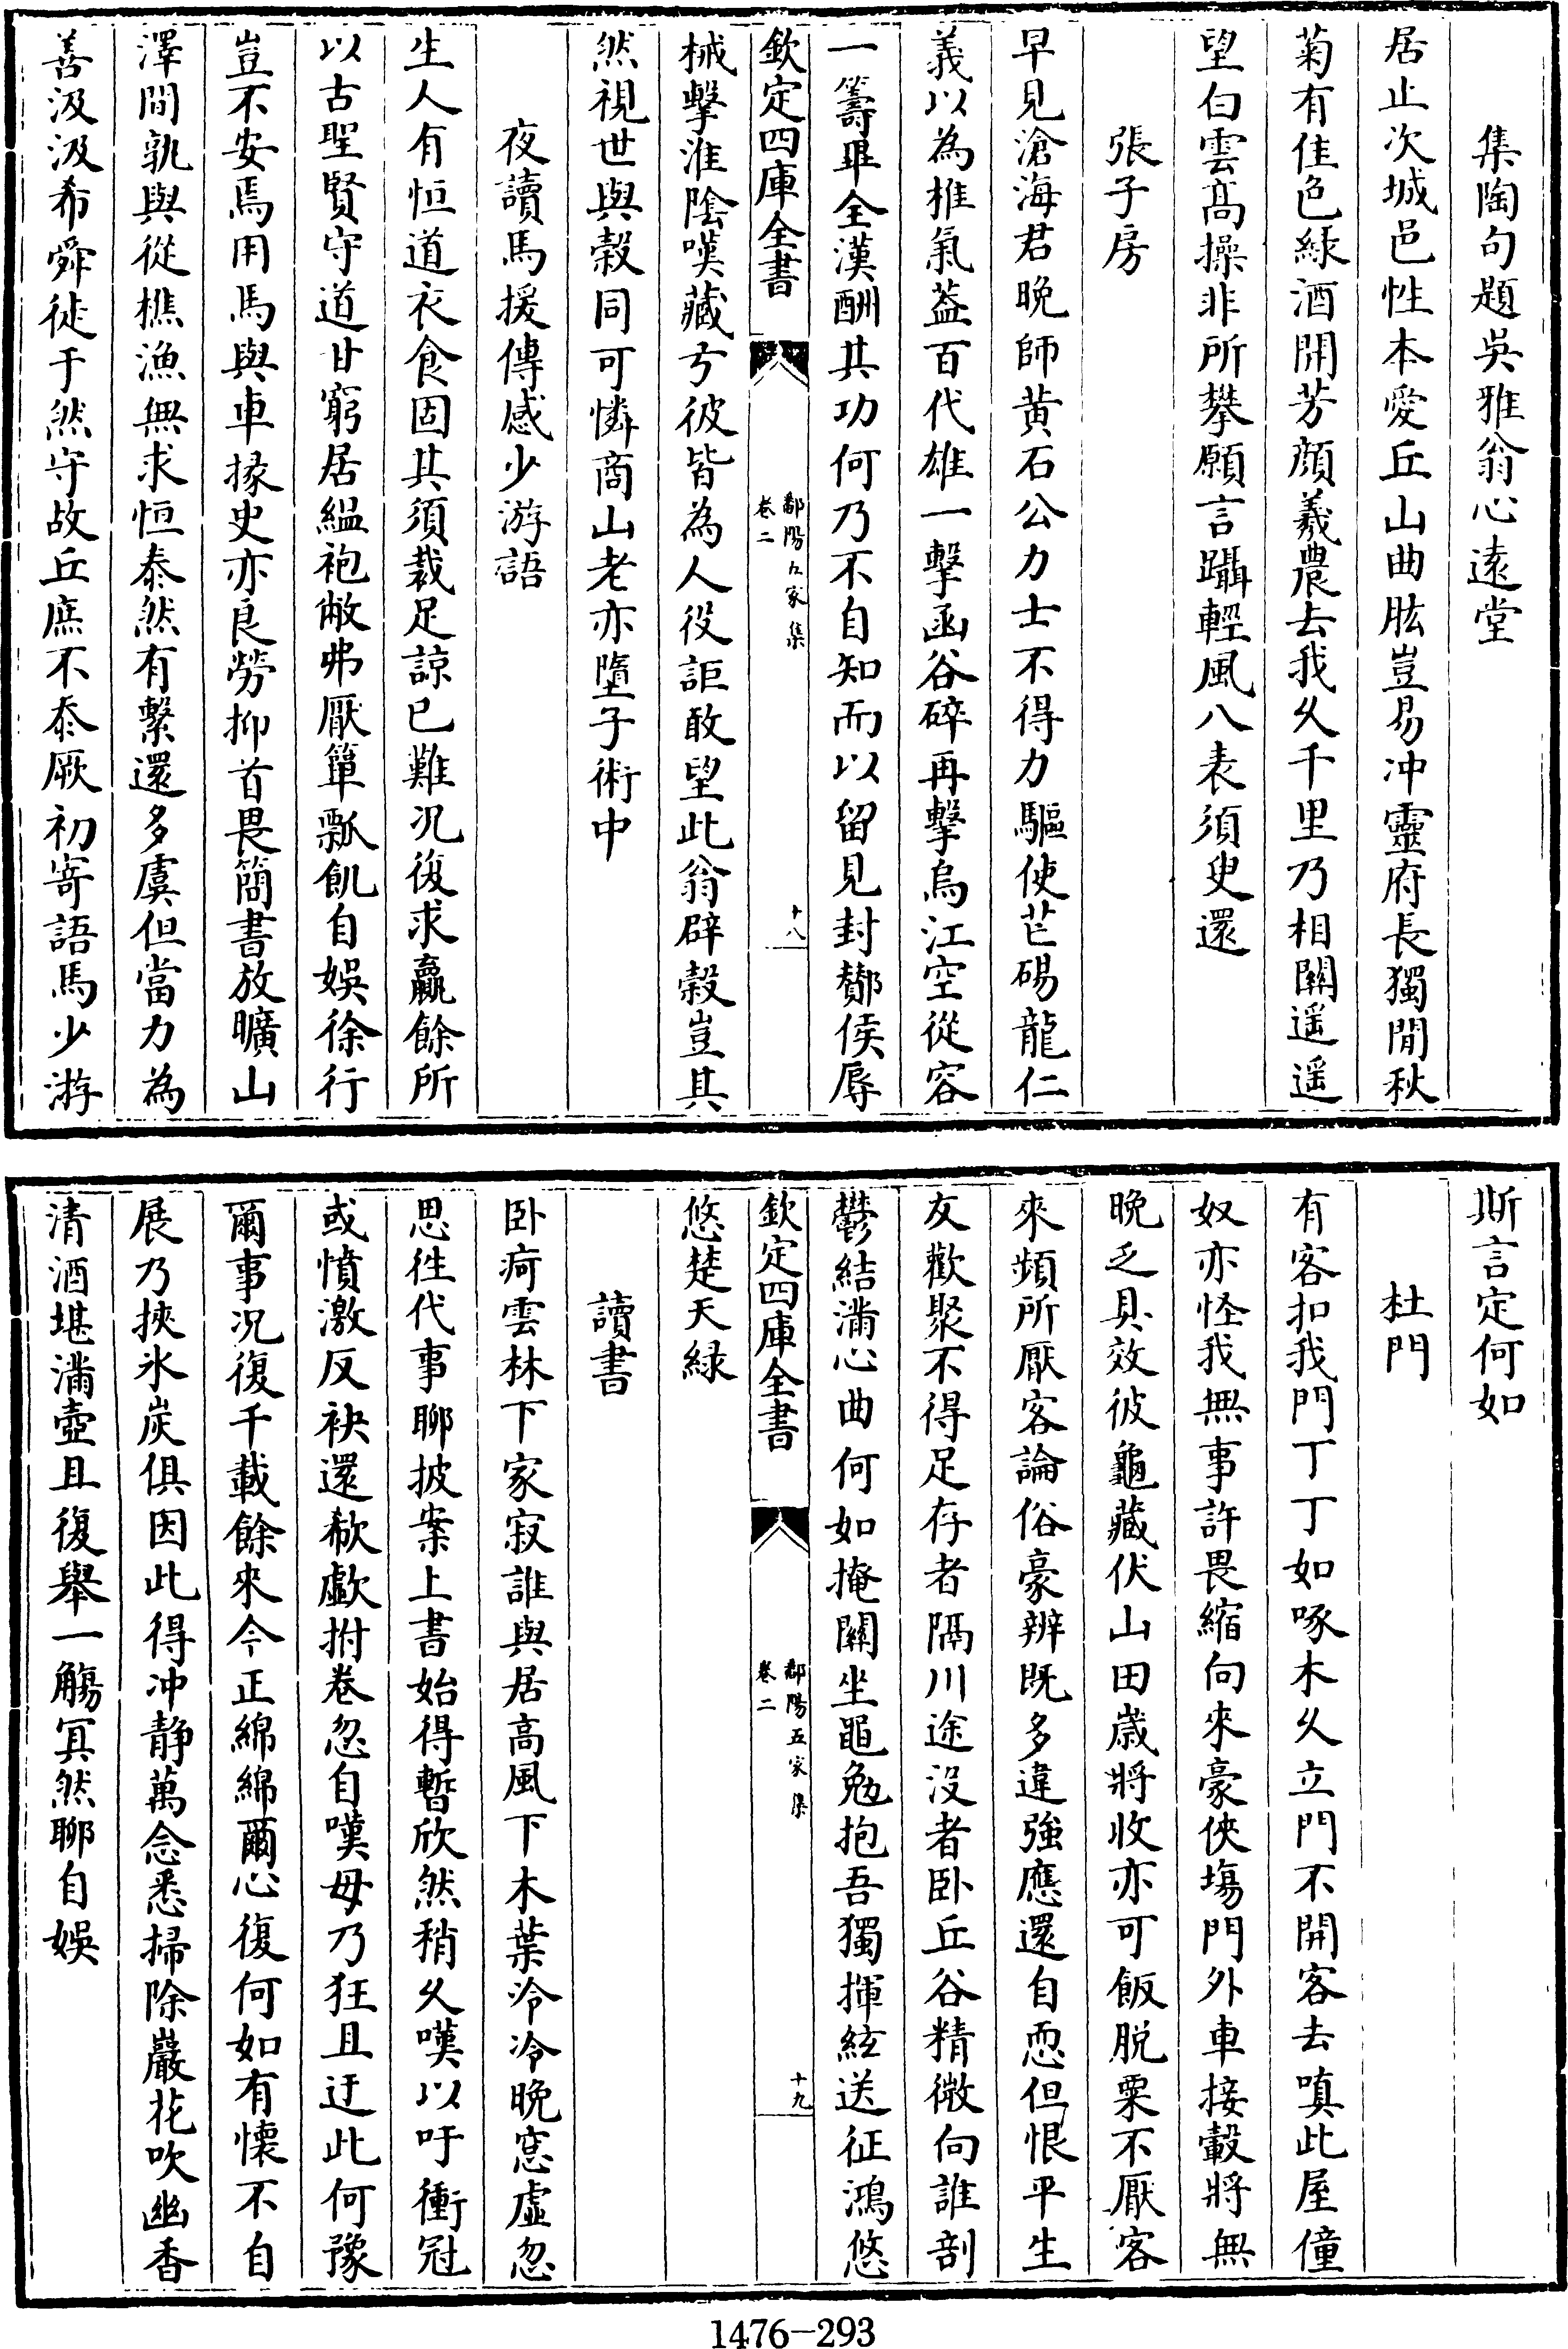 集陶句題吳雅翁心遠堂
居止次城邑性本愛丘山曲肱豈易冲靈府長獨閒秋
菊有佳色緑酒開芳顔羲農去我乆千里乃相關遥遥
望白雲髙操非所攀願言躡輕風八表須臾還
張子房
早見滄海君晚師黄石公力士不得力驅使芒碭龍仁
義以為椎氣葢百代雄一擊函谷碎再擊烏江空從容
一籌畢全漢酬其功何乃不自知而以留見封酇侯辱
欽定四庫全書
鄱陽五家集
卷二
十八
械擊淮陰嘆藏弓彼皆為人役詎敢望此翁辟穀豈其
然視世與穀同可憐商山老亦墮子術中
夜讀馬援傳感少游語
生人有恒道衣食固其須裁足諒已難况復求贏餘所
以古聖賢守道甘窮居緼袍敝弗厭簞瓢飢自娛徐行
豈不安焉用馬與車掾史亦良勞抑首畏簡書放曠山
澤間孰與從樵漁無求恒泰然有繫還多虞但當力為
善汲汲希舜徒于然守故丘庶不忝厥初寄語馬少游
斯言定何如
杜門
有客扣我門丁丁如啄木乆立門不開客去嗔此屋僮
奴亦怪我無事許畏縮向來豪俠塲門外車接轂將無
晚乏具效彼龜藏伏山田歲將收亦可飯脱粟不厭客
來頻所厭客論俗豪辨既多違強應還自恧但恨平生
友歡聚不得足存者隔川途没者卧丘谷精微向誰剖
鬱結滿心曲何如掩關坐黽勉抱吾獨揮絃送征鴻悠
欽定四庫全書
鄱陽五家集
卷二
十九
悠楚天緑
讀書
卧疴雲林下家寂誰與居高風下木葉冷冷晚窓虚忽
思徃代事聊披案上書始得暫欣然稍乆嘆以吁衝冠
或憤激反袂還欷歔拊卷忽自嘆毋乃狂且迂此何豫
爾事况復千載餘來今正綿綿爾心復何如有懐不自
展乃挾氷炭俱因此得冲静萬念悉掃除巖花吹幽香
清酒堪滿壺且復舉一觴冥然聊自娛
1476-293